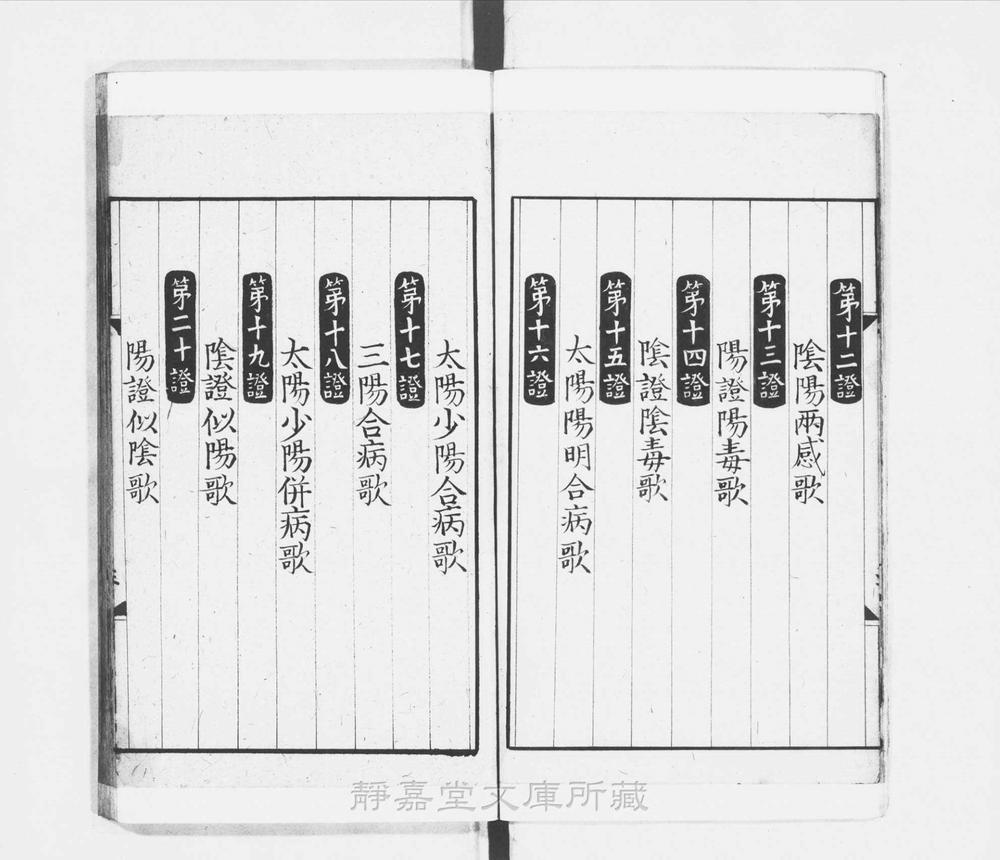 第十二證
陰陽兩感歌
第十三證
陽證陽毒歌
第十四證
陰證陰毒歌
第十五證
太陽陽明合病歌
第十六證
太陽少陽合病歌
第十七證
三陽合病歌
第十八證
太陽少陽併病歌
第十九證
陰證似陽歌
第二十證
陽證似陰歌
靜嘉堂文庫所藏